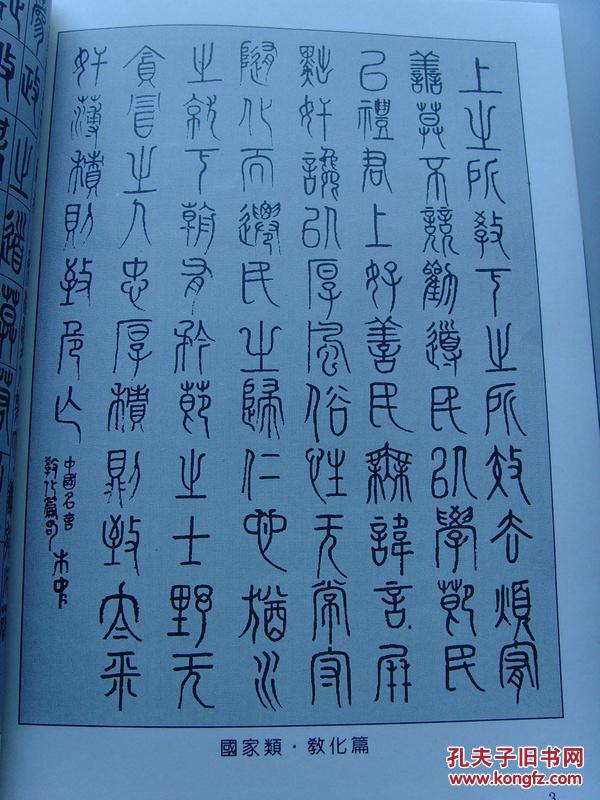 上之所教下之所效去煩
善莫不競勸導民以學節民
以禮君上好善民無諱言屏
黜奸讒以厚風俗性无常守
隨化而遷民之歸仁也猶水
之就下朝有矜節之士野无
貪冒之人忠厚積則致太平
奸薄積則致危亡
中國名言
教化篇句
國家類·教化篇
3
孔夫子旧书网
www.kongfz.com